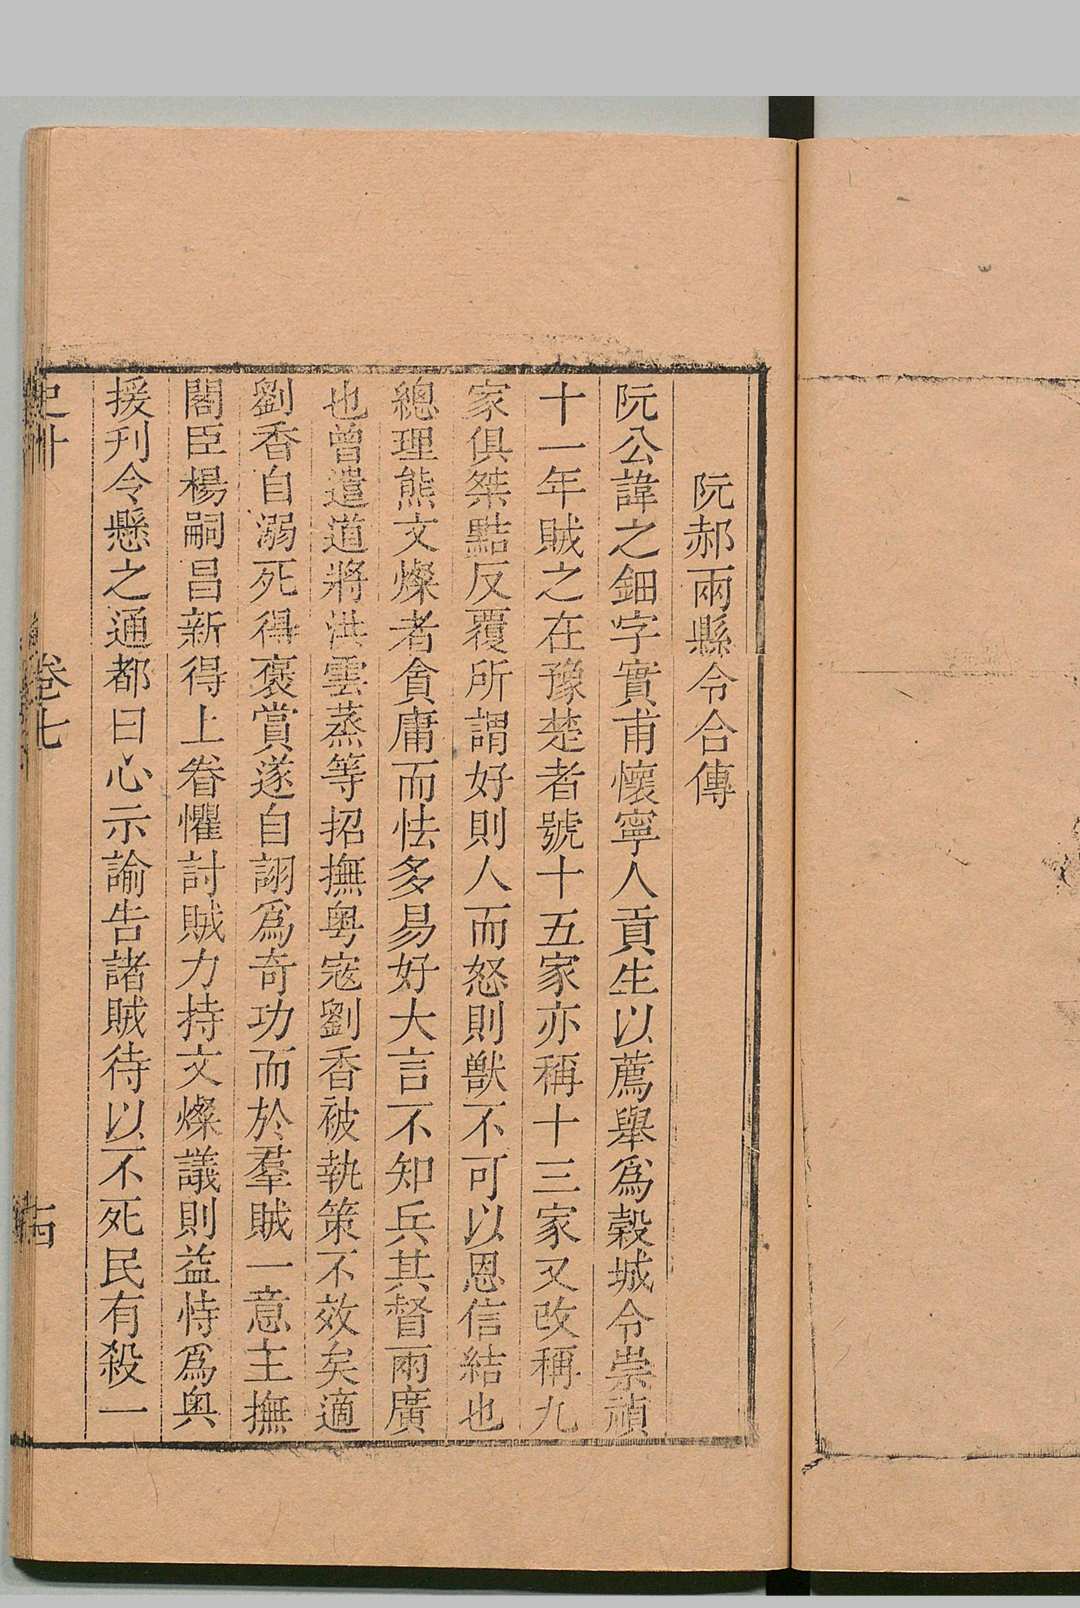 阮郝兩縣令合傳
阮公諱之鈿字實甫懷寧人貢生以薦舉爲穀城令崇禎
十一年賊之在豫楚者號十五家亦稱十三家又改稱九
家俱桀黠反覆所謂好則人而怒則獸不可以恩信結也
總理熊文燦者貪庸而怯多易好大言不知兵其督兩廣
也曾遣道將洪雲蒸等招撫粵寇劉香被執策不效矣適
劉香自溺死得褒賞遂自詡爲奇功而於羣賊一意主撫
閣臣楊嗣昌新得上眷懼討賊力持文燦議則益恃爲奥
援刋令懸之通都曰心示諭告諸賊待以不死民有殺一
卷七